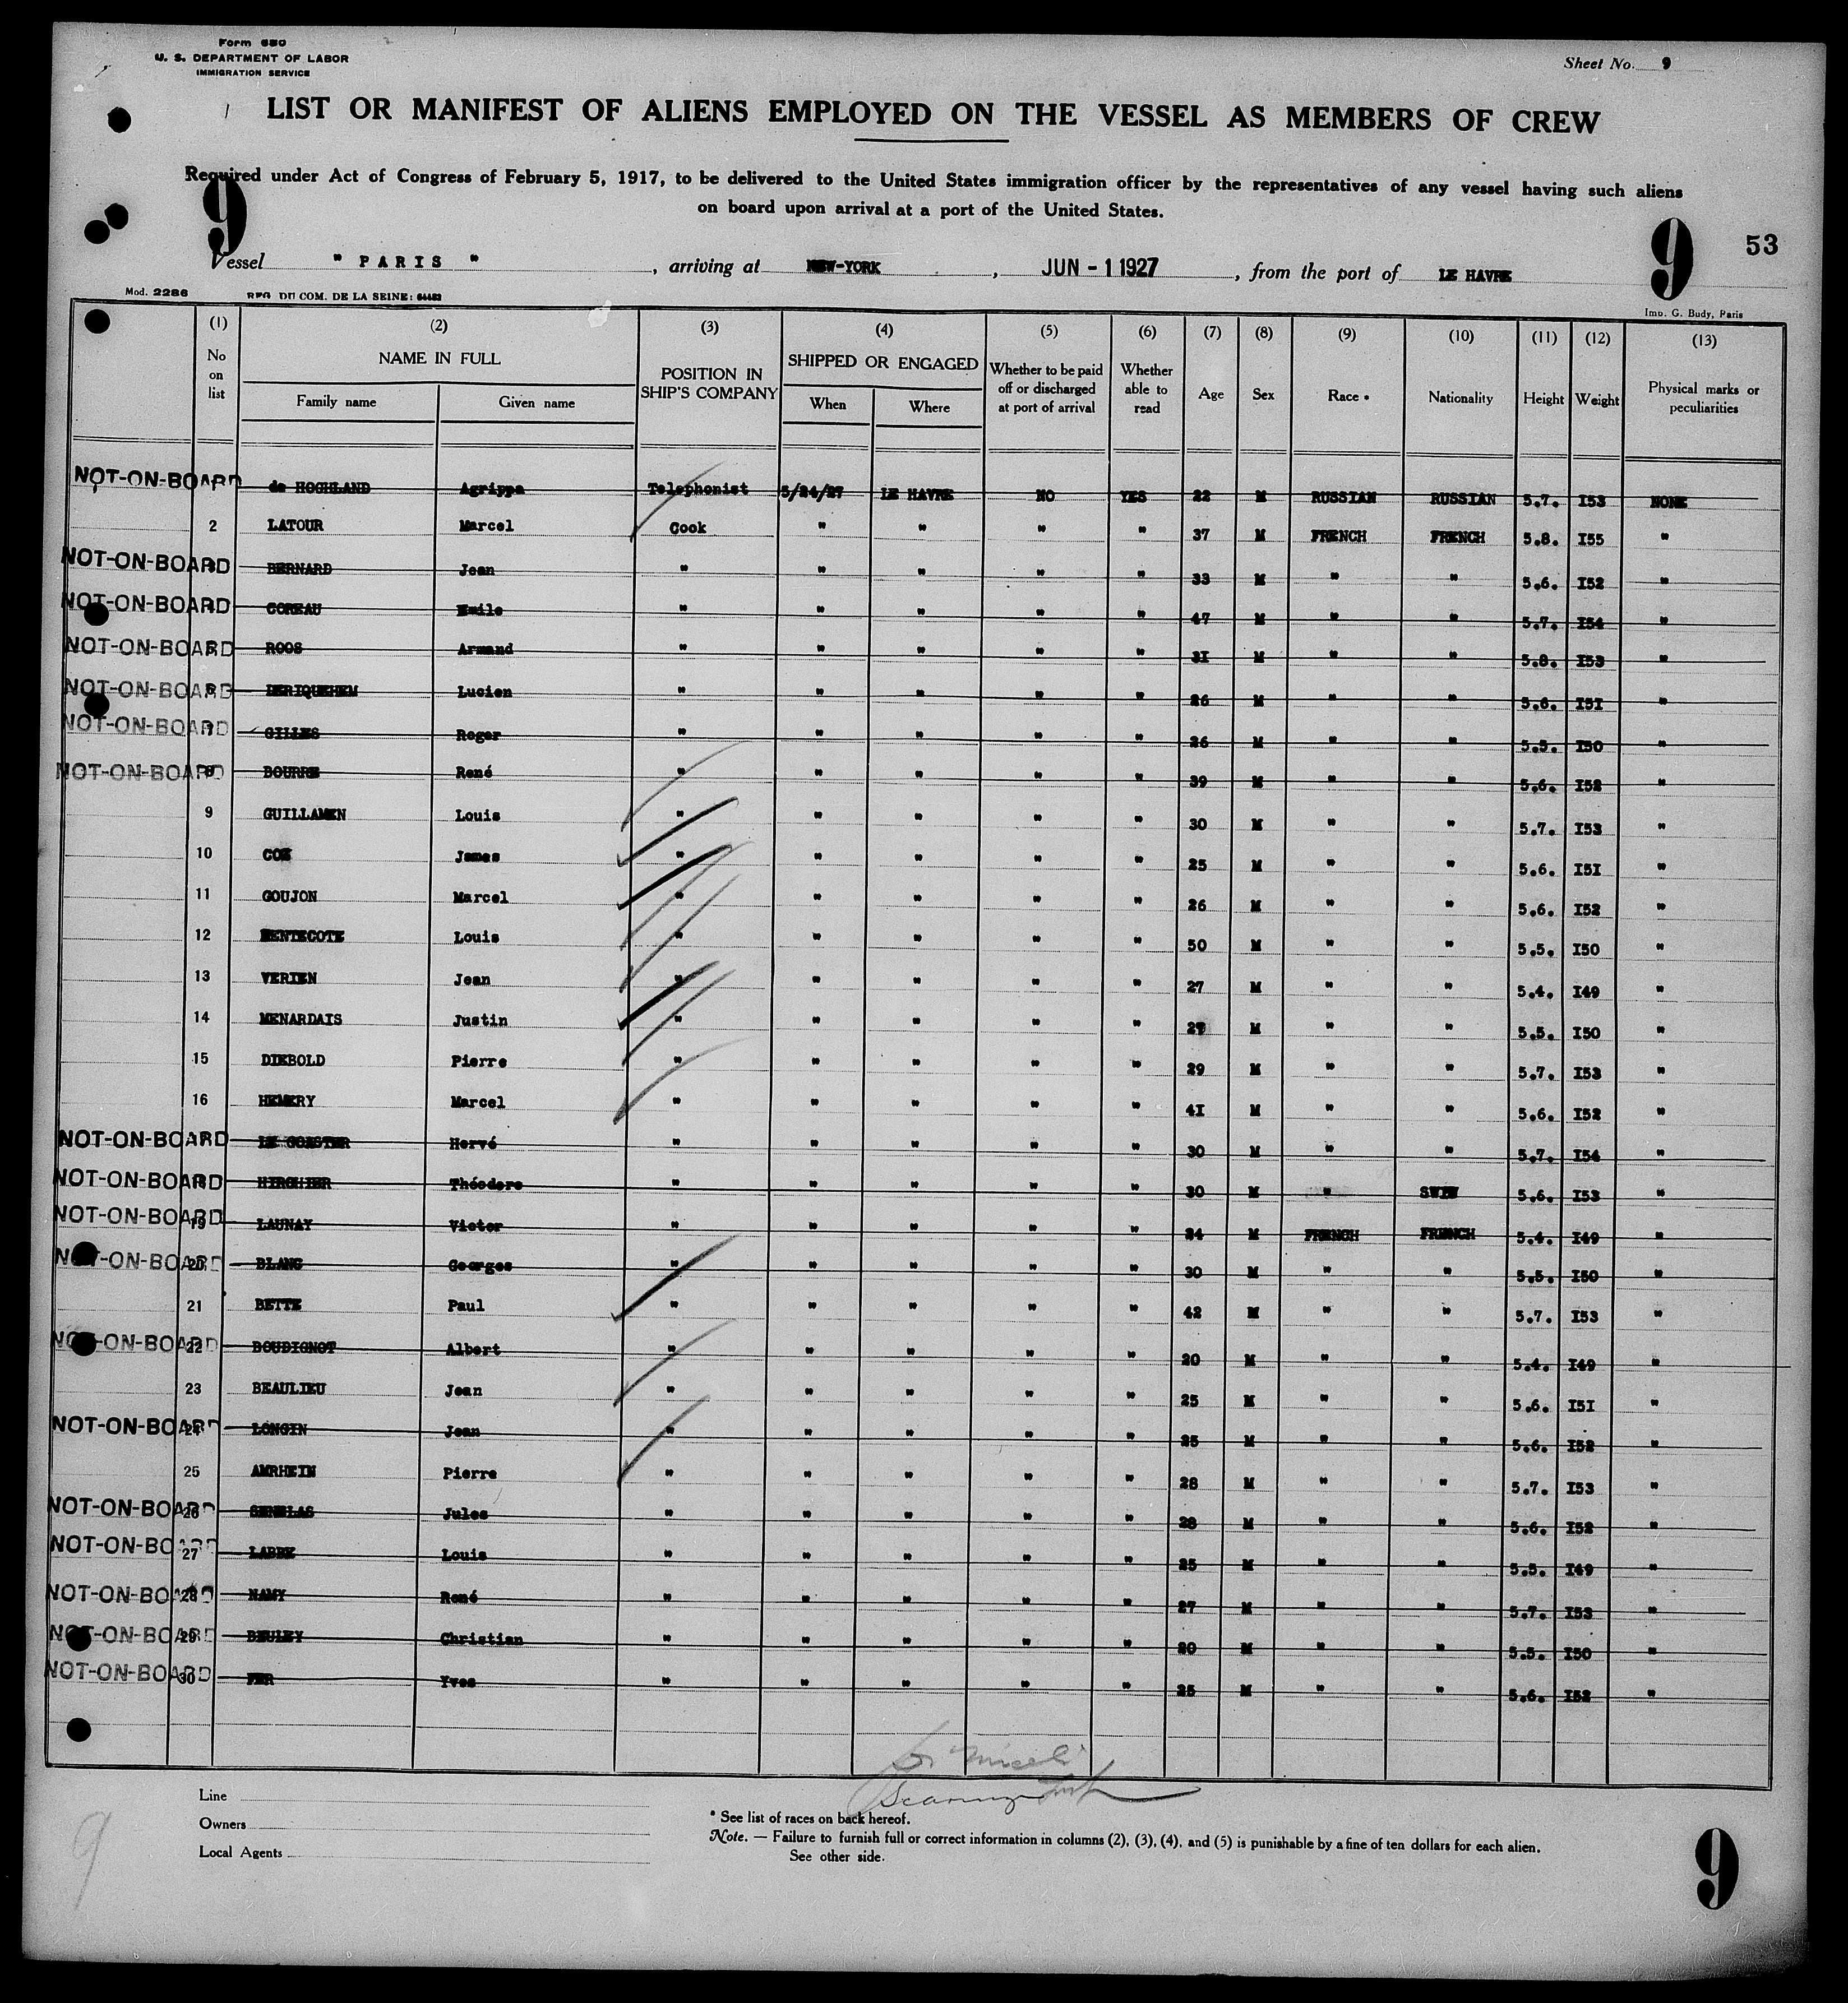 Form 680
U. S. DEPARTMENT OF LABOR
IMMIGRATION SERVICE
Sheet No. 9
LIST OR MANIFEST OF ALIENS EMPLOYED ON THE VESSEL AS MEMBERS OF CREW
Required under Act of Congress of February 5, 1917, to be delivered to the United States immigration officer by the representatives of any vessel having such aliens
on board upon arrival at a port of the United States.
9 9 53
Vessel " PARIS " , arriving at NEW-YORK , JUN - 1 1927 , from the port of LE HAVRE
Mod. 2286 REG. DU COM. DE LA SEINE: 64482 Imp. G. Budy, Paris
(1) (2) (3) (4) (5) (6) (7) (8) (9) (10) (11) (12) (13)
No on list NAME IN FULL POSITION IN SHIP'S COMPANY SHIPPED OR ENGAGED Whether to be paid off or discharged at port of arrival Whether able to read Age Sex Race * Nationality Height Weight Physical marks or peculiarities
Family name Given name When Where
NOT-ON-BOARD 1 de HOCHLAND Agrippa Telephonist 5/24/27 LE HAVRE NO YES 22 M RUSSIAN RUSSIAN 5.7. I53 NONE
2 LATOUR Marcel Cook " " " " 37 M FRENCH FRENCH 5.8. I55 "
NOT-ON-BOARD 3 BERNARD Jean " " " " " 33 M " " 5.6. I52 "
NOT-ON-BOARD 4 COREAU Emile " " " " " 47 M " " 5.7. I54 "
NOT-ON-BOARD 5 ROOS Armand " " " " " 3I M " " 5.8. I53 "
NOT-ON-BOARD 6 DERIQUEHEM Lucien " " " " " 26 M " " 5.6. I5I "
NOT-ON-BOARD 7 GILLES Roger " " " " " 26 M " " 5.5. I50 "
NOT-ON-BOARD 8 BOURRE René " " " " " 39 M " " 5.6. I52 "
9 GUILLAMEN Louis " " " " " 30 M " " 5.7. I53 "
10 James " " " " " 25 M " " 5.6. I5I "
11 GOUJON Marcel " " " " " 26 M " " 5.6. I52 "
12 PENTECOTE Louis " " " " " 50 M " " 5.5. I50 "
13 VERIEN Jean " " " " " 27 M " " 5.4. I49 "
14 MENARDAIS Justin " " " " " M " " 5.5. I50 "
15 DIEBOLD Pierre " " " " " 29 M " " 5.7. I53 "
16 HEMERY Marcel " " " " " 4I M " " 5.6. I52 "
NOT-ON-BOARD LE GOASTER Hervé " " " " " 30 M " " 5.7. I54 "
NOT-ON-BOARD 18 HIRCHIER Théodore " " " " " 30 M " 5.6. I53 "
NOT-ON-BOARD 19 LAUNAY Victor " " " " " 24 M FRENCH FRENCH 5.4. I49 "
NOT-ON-BOARD 20 BLANG Georges " " " " " 30 M " " 5.5. I50 "
21 BETTE Paul " " " " " 42 M " " 5.7. I53 "
NOT-ON-BOARD 22 BOUDIGNOT Albert " " " " " 20 M " " 5.4. I49 "
23 BEAULIEU Jean " " " " " 25 M " " 5.6. I5I "
NOT-ON-BOARD 24 LONGIN Jean " " " " " 25 M " " 5.6. I52 "
25 AMRHEIN Pierre " " " " " 28 M " " 5.7. I53 "
NOT-ON-BOARD 26 Jules " " " " " 28 M " " 5.6. I52 "
NOT-ON-BOARD 27 LABBE Louis " " " " " 25 M " " 5.5. I49 "
NOT-ON-BOARD 28 NAMY René " " " " " 27 M " " 5.7. I53 "
NOT-ON-BOARD 29 BEULEY Christian " " " " " 20 M " " 5.5. I50 "
NOT-ON-BOARD 30 FER Yves " " " " " 25 M " " 5.6. I52 "
Line
Owners
Local Agents
* See list of races on back hereof.
Note. — Failure to furnish full or correct information in columns (2), (3), (4), and (5) is punishable by a fine of ten dollars for each alien.
See other side.
9 9